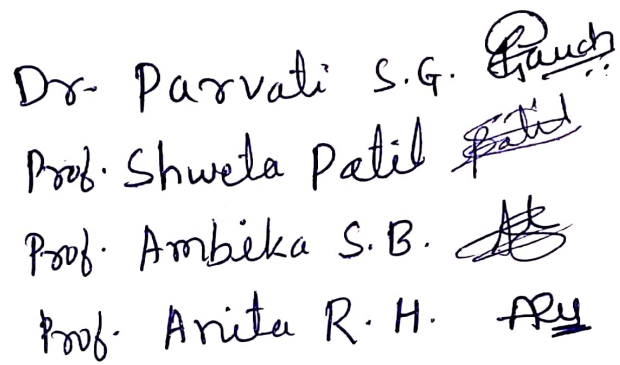 Dr. Parvati S.G.
Prof. Shweta Patil Patil
Prof. Ambika S.B.
Prof. Anita R.H.